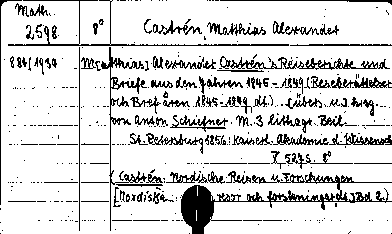 Math.
2598 8° Castrén, Matthias Alexander
884/1930 M[atthias] Alexander Castrén's Reiseberichte und
Briefe aus den Jahren 1845-1849 (Reseberättelser
och Bref åren 1845-1849, dt.). (übers. u.) hrsg.
von Anton Schiefner. M. 3 lithogr. Beil.
St. Petersburg 1856: Kaiserl. Akademie d. Wissensch.
527 S. 8°
(Castrén: Nordische Reisen u. Forschungen
[Nordiska resor och forskningar, dt.] Bd 2.)